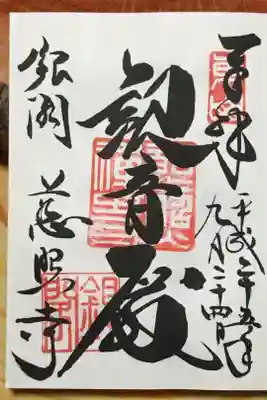 奉拝
平成二十五年
九月二十四日
観音殿
銀閣 慈照寺